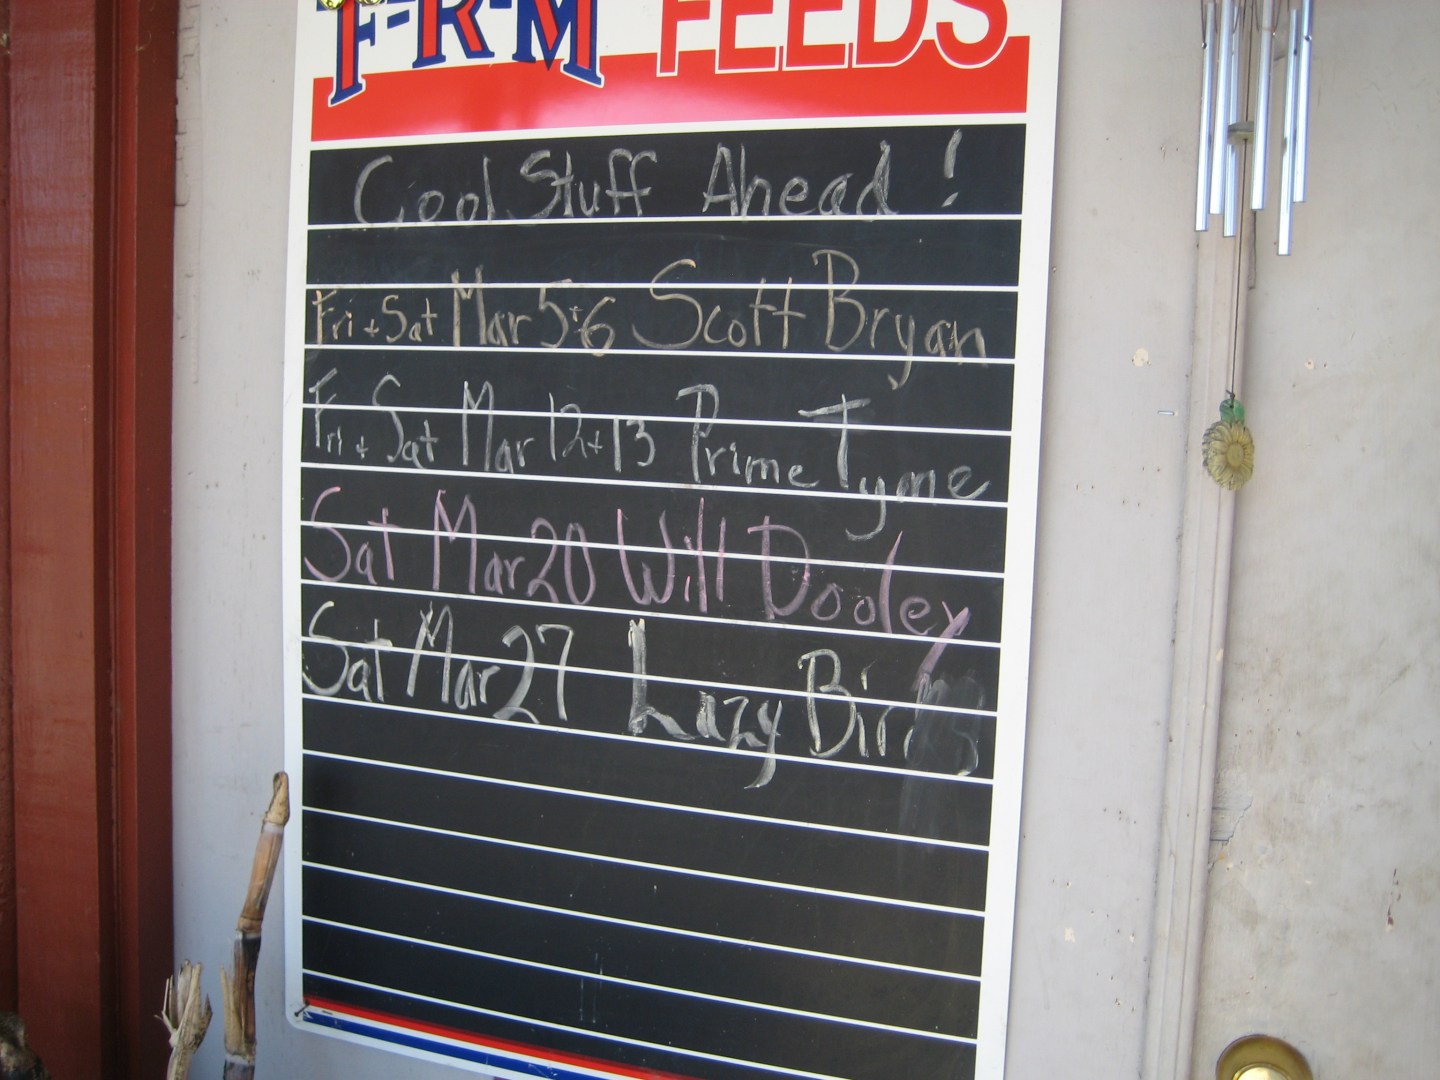 F-R-M FEEDS
Cool Stuff Ahead!
Fri + Sat Mar 5+6 Scott Bryan
Fri + Sat Mar 12+13 Prime Tyme
Sat Mar 20 Will Dooley
Sat Mar 27 Lazy Birds